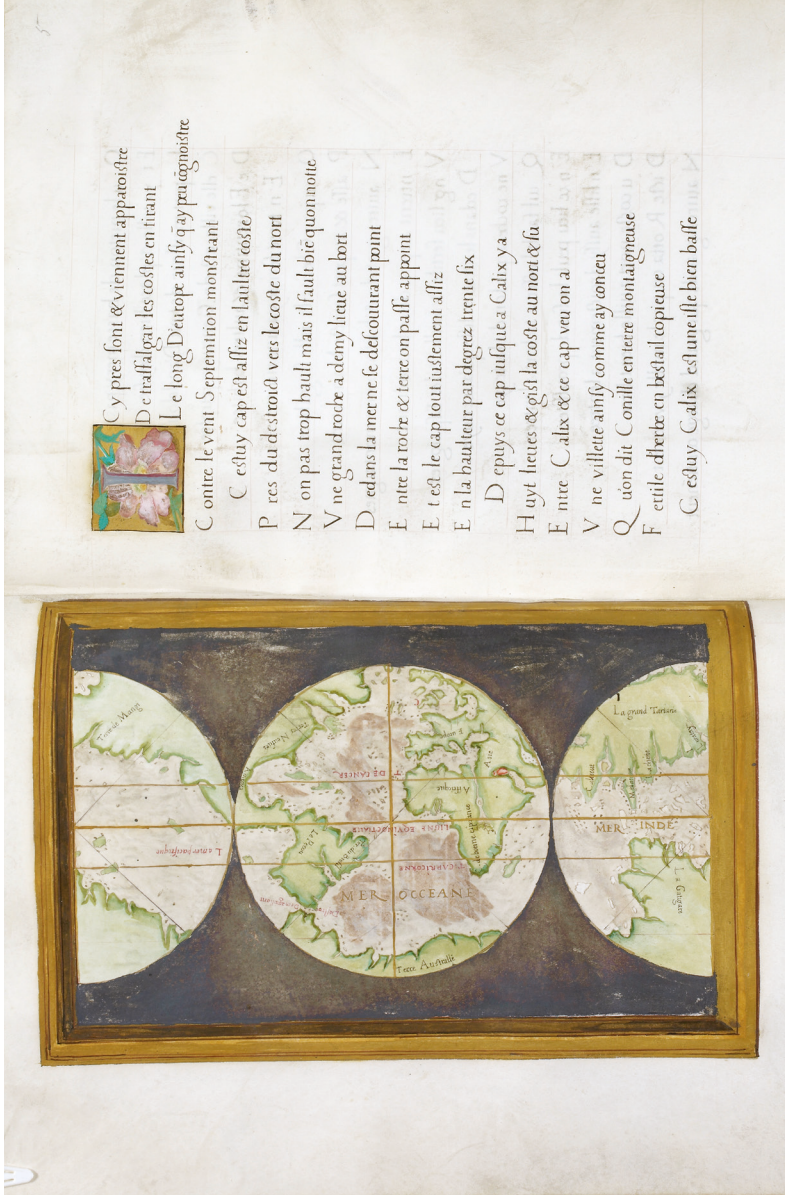 I Cy pres sont & viennent apparoistre
De traffalgar les costes en tirant
Le long D'europe ainsy q̃ ay peu cõgnoistre
Contre levent Septemtrion monstrant
Cestuy cap est assiz en laultre coste
Pres du destroict vers le coste du nort
Non pas trop hault mais il fault biẽ quon notte
Vne grand roche a demy lieue au bort
Dedans la mer ne se descouurant point
Entre la roche & terre on passe appoint
Et est le cap tout iustement assiz
En la haulteur par degrez trente six
Depuys ce cap iusque a Calix y a
Huyt lieues & gist la coste au nort & su
Entre Calix & ce cap veu on a
Vne villette ainsy comme ay conceu
Quon dit Conille en terre montaigneuse
Fertile dherbe en bestail copieuse
Cestuy Calix est une isle bien basse
La mer pacifique
Terre Neufue
T DE CANCER
LIGNE EQVINOCTIALE
T CAPRICORNE
Le Perou
Le bresil
Europe
Asie
Affrique
MER OCCEANE
Terre Australle
La grand Tartarie
MER INDE